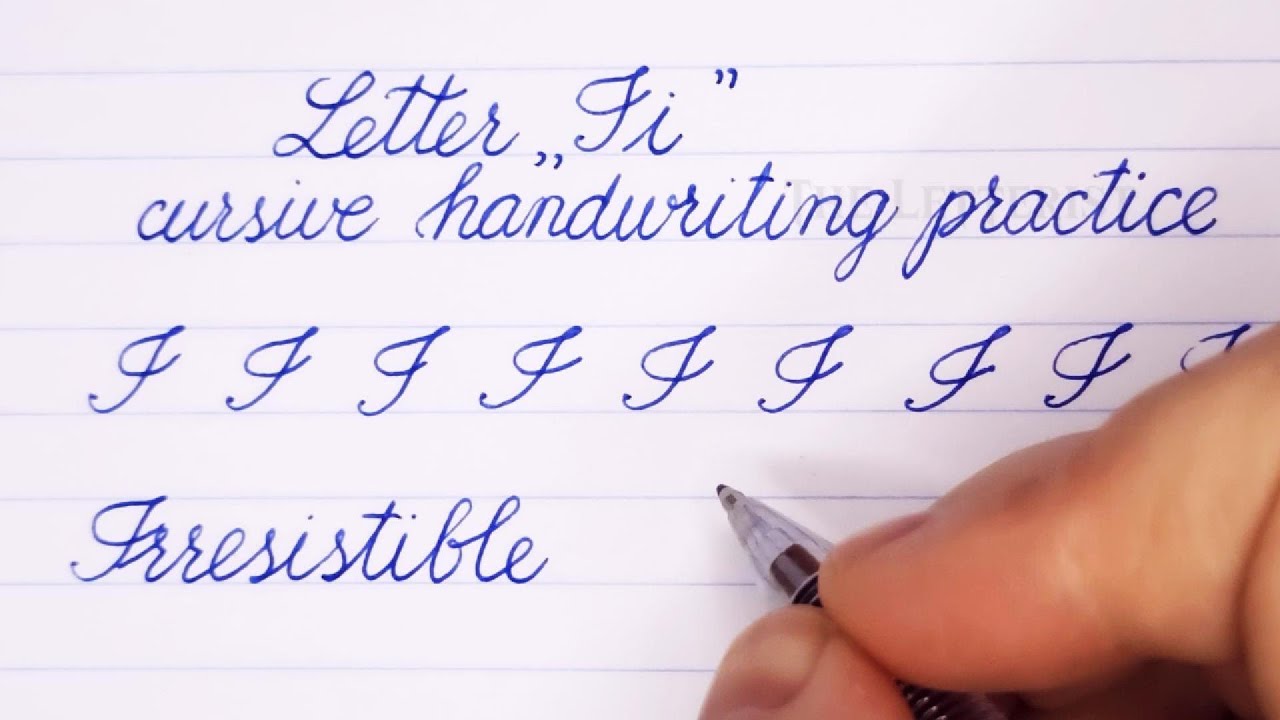 Letter „Ii”
cursive handwriting practice
I I I I I I I I I
Irresistible